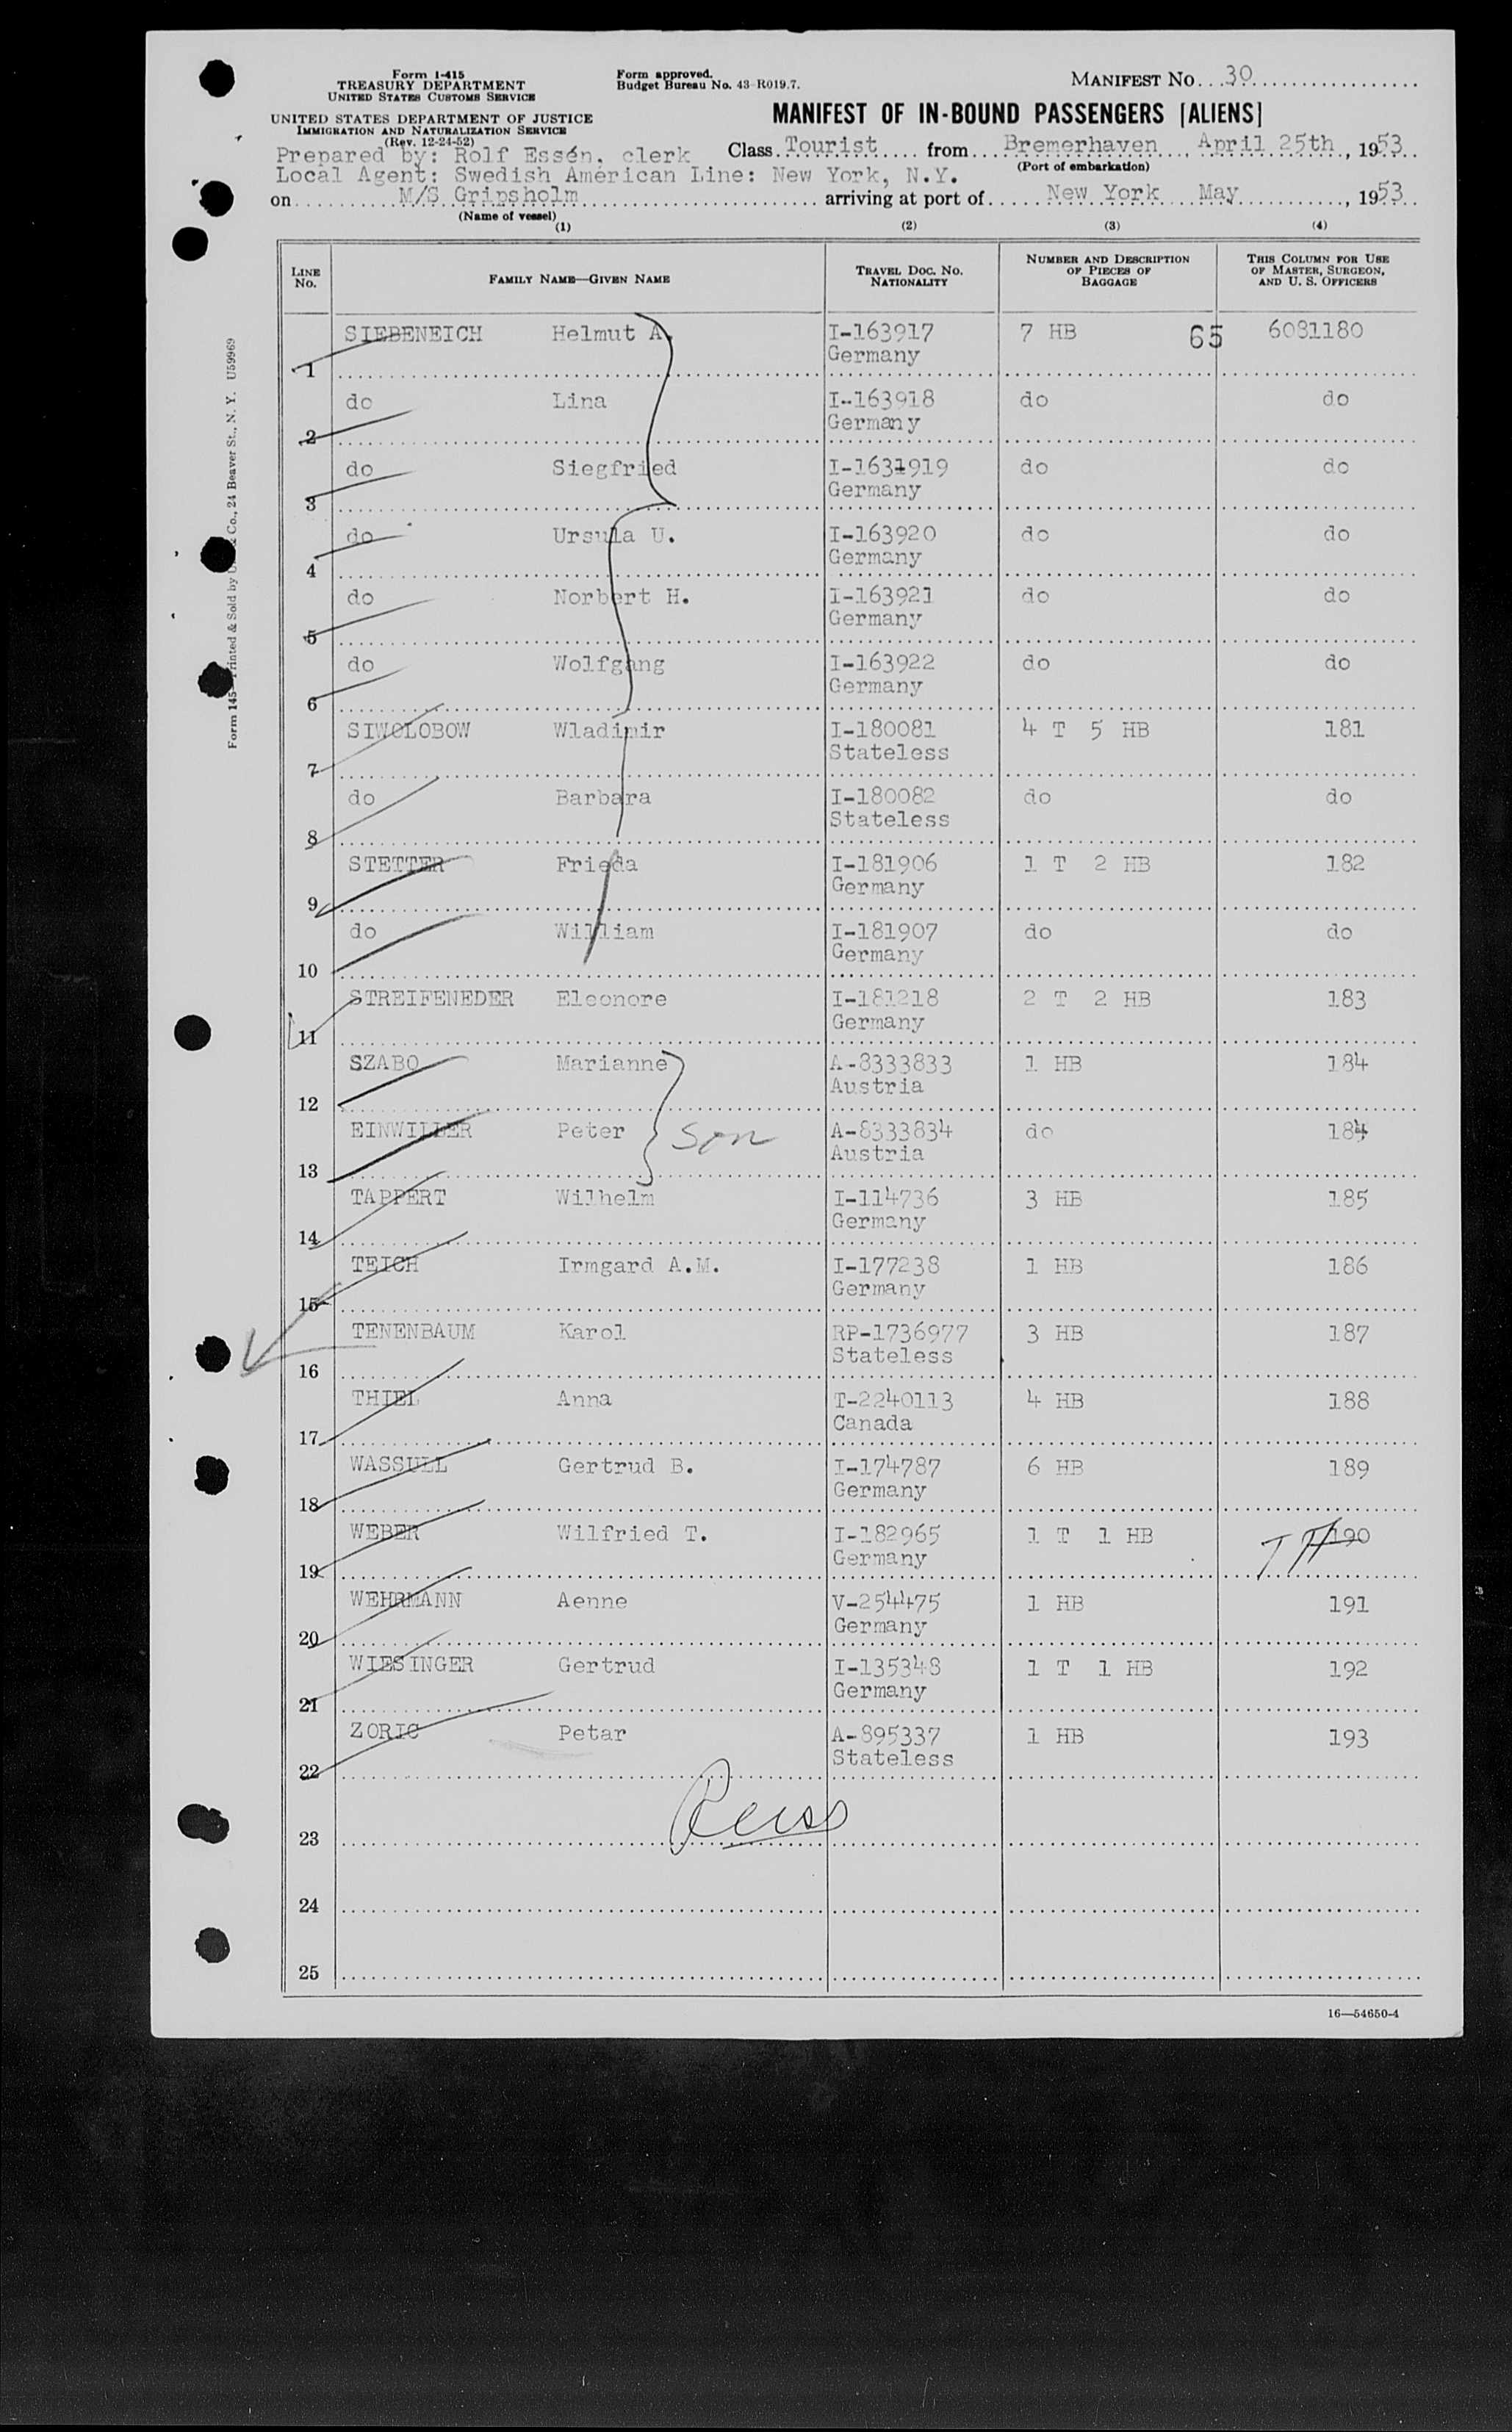 Form I-415
TREASURY DEPARTMENT
UNITED STATES CUSTOMS SERVICE
UNITED STATES DEPARTMENT OF JUSTICE
IMMIGRATION AND NATURALIZATION SERVICE
(Rev. 12-24-52)
Form approved.
Budget Bureau No. 43-R019.7.
MANIFEST NO. 30
MANIFEST OF IN-BOUND PASSENGERS [ALIENS]
Prepared by: Rolf Essén, clerk
Class Tourist from Bremerhaven, April 25th, 1953
(Port of embarkation)
Local Agent: Swedish American Line: New York, N.Y.
on M/S Gripsholm arriving at port of New York May, 1953
(Name of vessel)
(1) (2) (3) (4)
LINE NO. FAMILY NAME—GIVEN NAME TRAVEL DOC. NO. NATIONALITY NUMBER AND DESCRIPTION OF PIECES OF BAGGAGE THIS COLUMN FOR USE OF MASTER, SURGEON, AND U. S. OFFICERS
1 SIEBENEICH Helmut A. I-163917 7 HB 65 6081180
Germany
2 do Lina I-163918 do do
Germany
3 do Siegfried I-1631919 do do
Germany
4 do Ursula U. I-163920 do do
Germany
5 do Norbert H. I-163921 do do
Germany
6 do Wolfgang I-163922 do do
Germany
7 SIWOLOBOW Wladimir I-180081 4 T 5 HB 181
Stateless
8 do Barbara I-180082 do do
Stateless
9 STETTER Frieda I-181906 1 T 2 HB 182
Germany
10 do William I-181907 do do
Germany
11 STREIFENEDER Eleonore I-181218 2 T 2 HB 183
Germany
12 SZABO Marianne A-8333833 1 HB 184
Austria
13 EINWILLER Peter son A-8333834 do 184
Austria
14 TAPPERT Wilhelm I-114736 3 HB 185
Germany
15 TEICH Irmgard A.M. I-177238 1 HB 186
Germany
16 TENENBAUM Karol RP-1736977 3 HB 187
Stateless
17 THIEL Anna T-2240113 4 HB 188
Canada
18 WASSULL Gertrud B. I-174787 6 HB 189
Germany
19 WEBER Wilfried T. I-182965 1 T 1 HB 190
Germany
20 WEHRMANN Aenne V-254475 1 HB 191
Germany
21 WIESINGER Gertrud I-135348 1 T 1 HB 192
Germany
22 ZORIC Petar A-895337 1 HB 193
Stateless
23
24
25
16—54650-4
Co., 24 Beaver St., N. Y. U59969
Form 145 Printed & Sold by